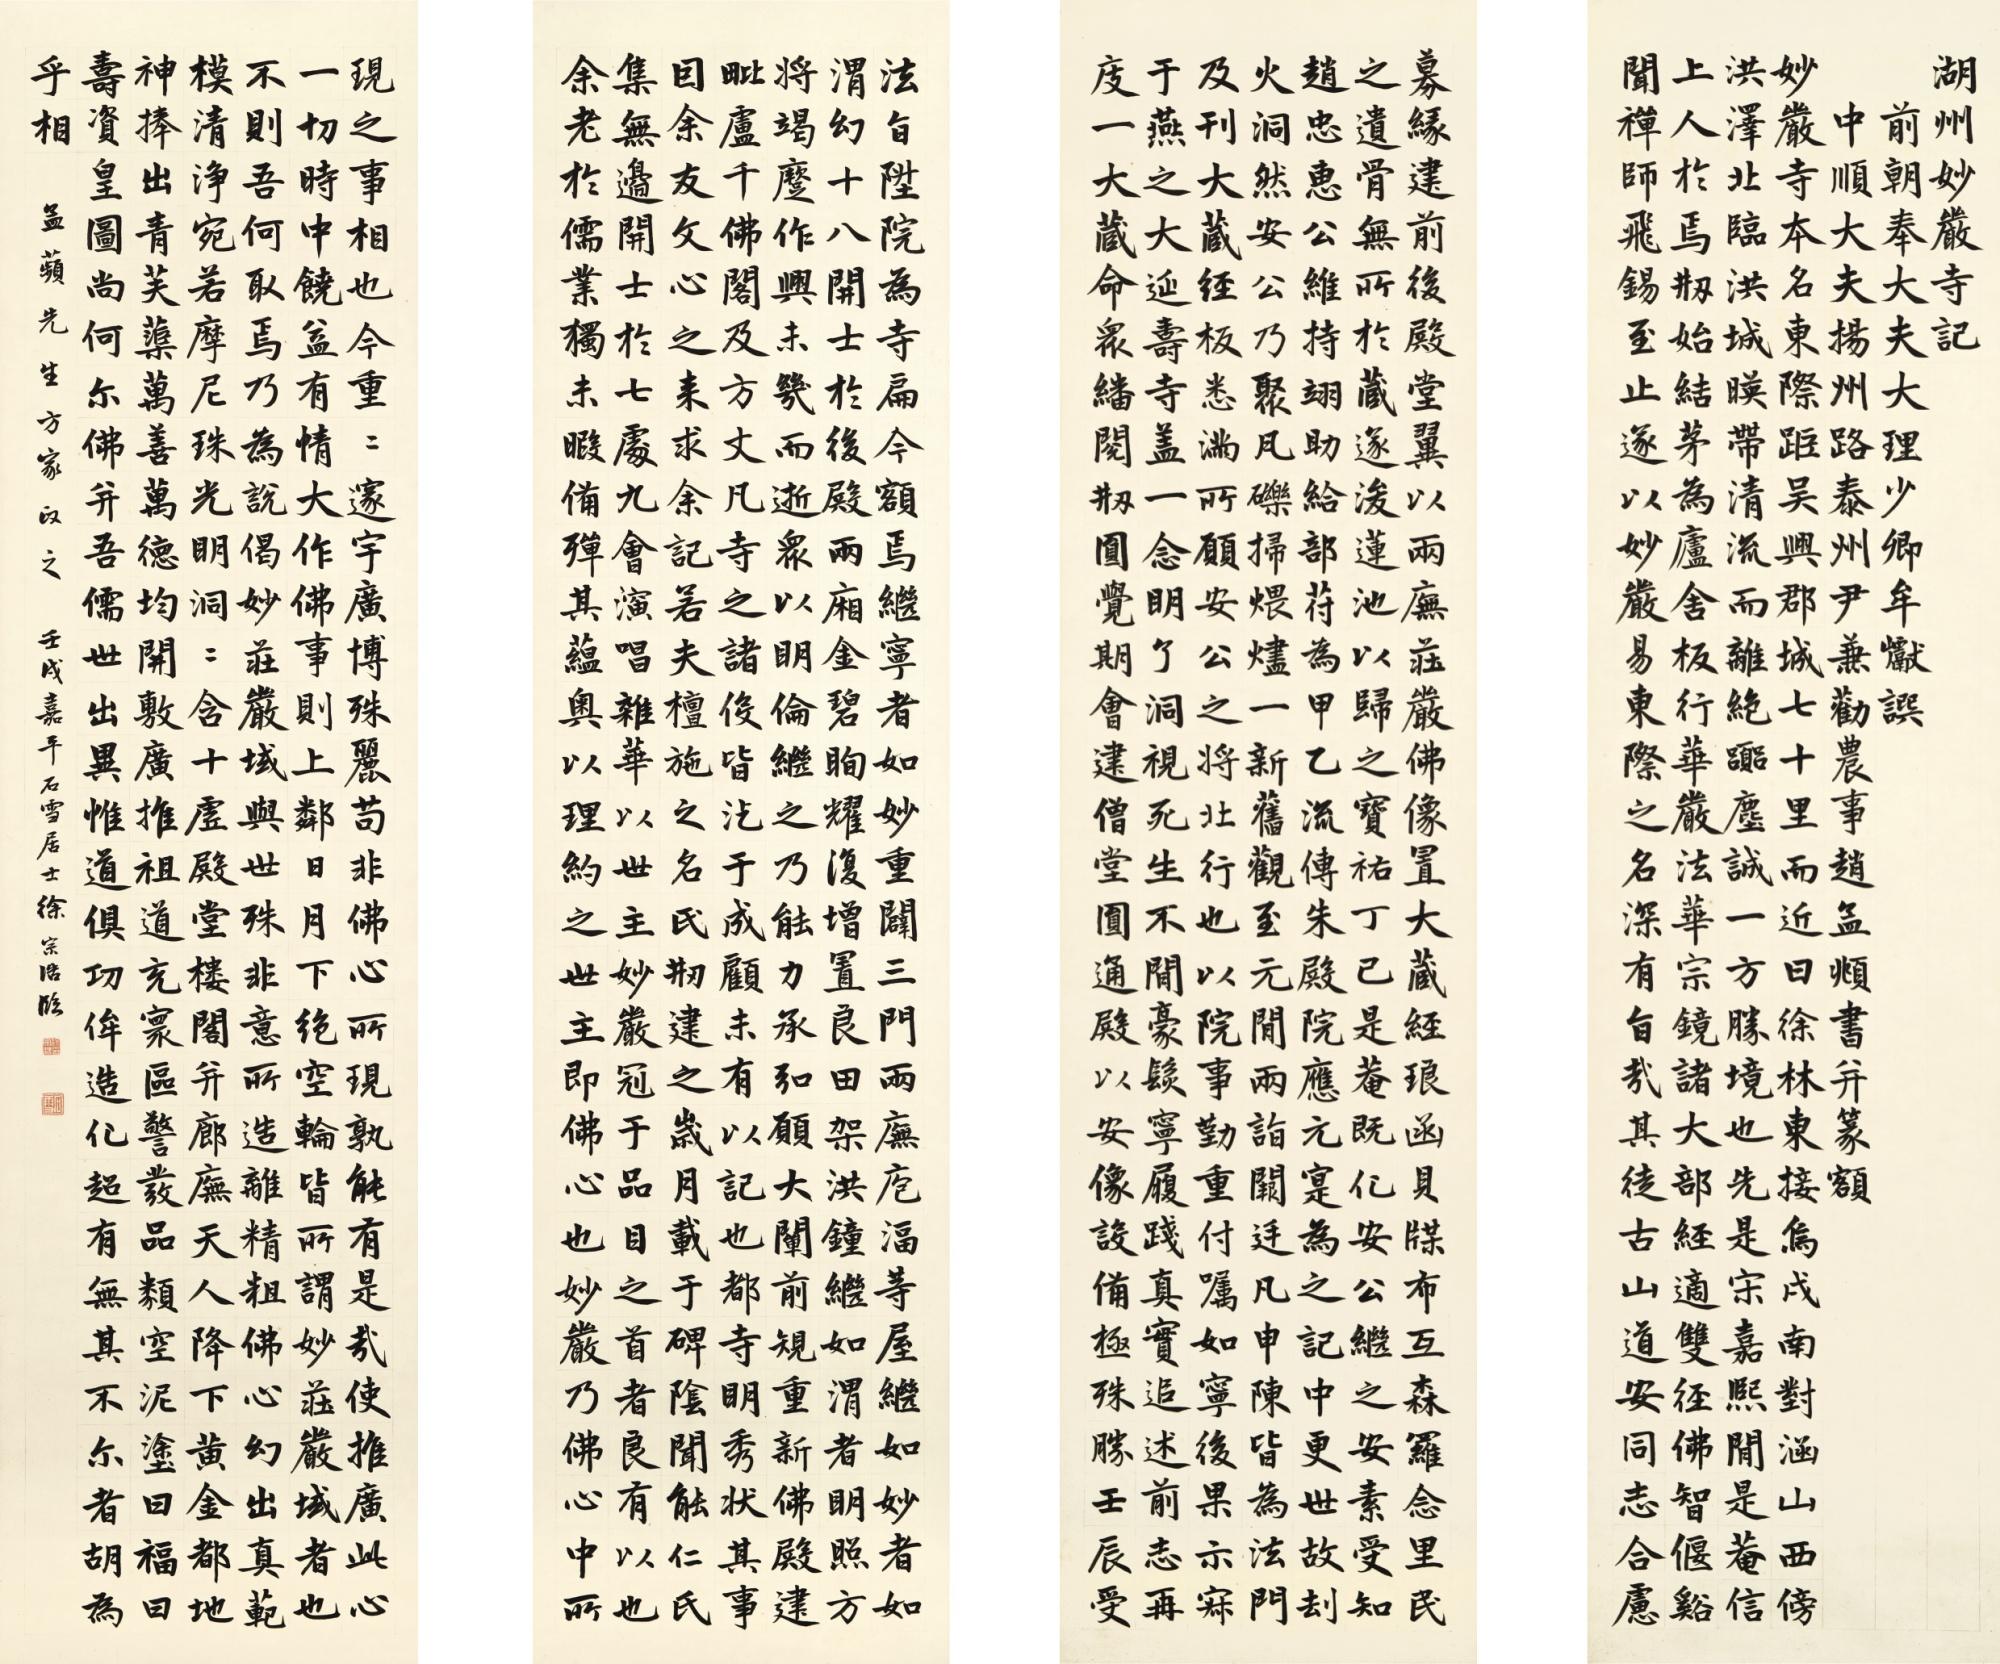 湖州妙嚴寺記
前朝奉大夫大理少卿牟巘譔
中順大夫揚州路泰州尹兼勸農事趙孟頫書并篆額
妙嚴寺本名東際距吳興郡城七十里而近曰徐林東接烏戍南對涵山西傍
洪澤北臨洪城暎帶清流而離絶囂塵誠一方勝境也先是宋嘉熙間是菴信
上人於焉刱始結茅為廬舍板行華嚴法華宗鏡諸大部經適雙徑佛智偃谿
聞禪師飛錫至止遂以妙嚴易東際之名深有旨哉其徒古山道安同志合慮
募緣建前後殿堂翼以兩廡莊嚴佛像置大藏經琅函貝牒布互森羅念里民
之遺骨無所於藏遂浚蓮池以歸之寶祐丁巳是菴既化安公繼之安素受知
趙忠惠公維持翊助給部符為甲乙流傳朱殿院應元寔為之記中更世故刦
火洞然安公乃聚凡礫掃煨燼一新舊觀至元間兩詣闕廷凡申陳皆為法門
及刊大藏經板悉滿所願安公之將北行也以院事勤重付囑如寧後果示寂
于燕之大延壽寺盖一念明了洞視死生不間豪髮寧履踐真實追述前志再
度一大藏命衆繙閱刱圓覺期會建僧堂圓通殿以安像設備極殊勝壬辰受
法旨陞院為寺扁今額焉繼寧者如妙重闢三門兩廡庖湢等屋繼如妙者如
渭幻十八開士於後殿兩廂金碧眴耀復增置良田架洪鐘繼如渭者明照方
將竭蹷作興未幾而逝衆以明倫繼之乃能力承弘願大闡前規重新佛殿建
毗盧千佛閣及方丈凡寺之諸役皆汔于成顧未有以記也都寺明秀狀其事
因余友文心之来求余記若夫檀施之名氏刱建之歲月載于碑陰聞能仁氏
集無邊開士於七處九會演唱雜華以世主妙嚴冠于品目之首者良有以也
余老於儒業獨未暇備殫其蘊奥以理約之世主即佛心也妙嚴乃佛心中所
現之事相也今重〻邃宇廣博殊麗苟非佛心所現孰能有是哉使推廣此心
一切時中饒益有情大作佛事則上鄰日月下絶空輪皆所謂妙莊嚴域者也
不則吾何取焉乃為說偈妙莊嚴域與世殊非意所造離精粗佛心幻出真範
模清浄宛若摩尼珠光明洞〻含十虛殿堂樓閣并廊廡天人降下黄金都地
神捧出青芙蕖萬善萬德均開敷廣推祖道充寰區警發品類空泥塗曰福曰
壽資皇圖尚何尓佛并吾儒世出異惟道俱功侔造化超有無其不尓者胡為
乎相
孟蘋先生方家政之
壬戌嘉平石雪居士徐宗浩臨